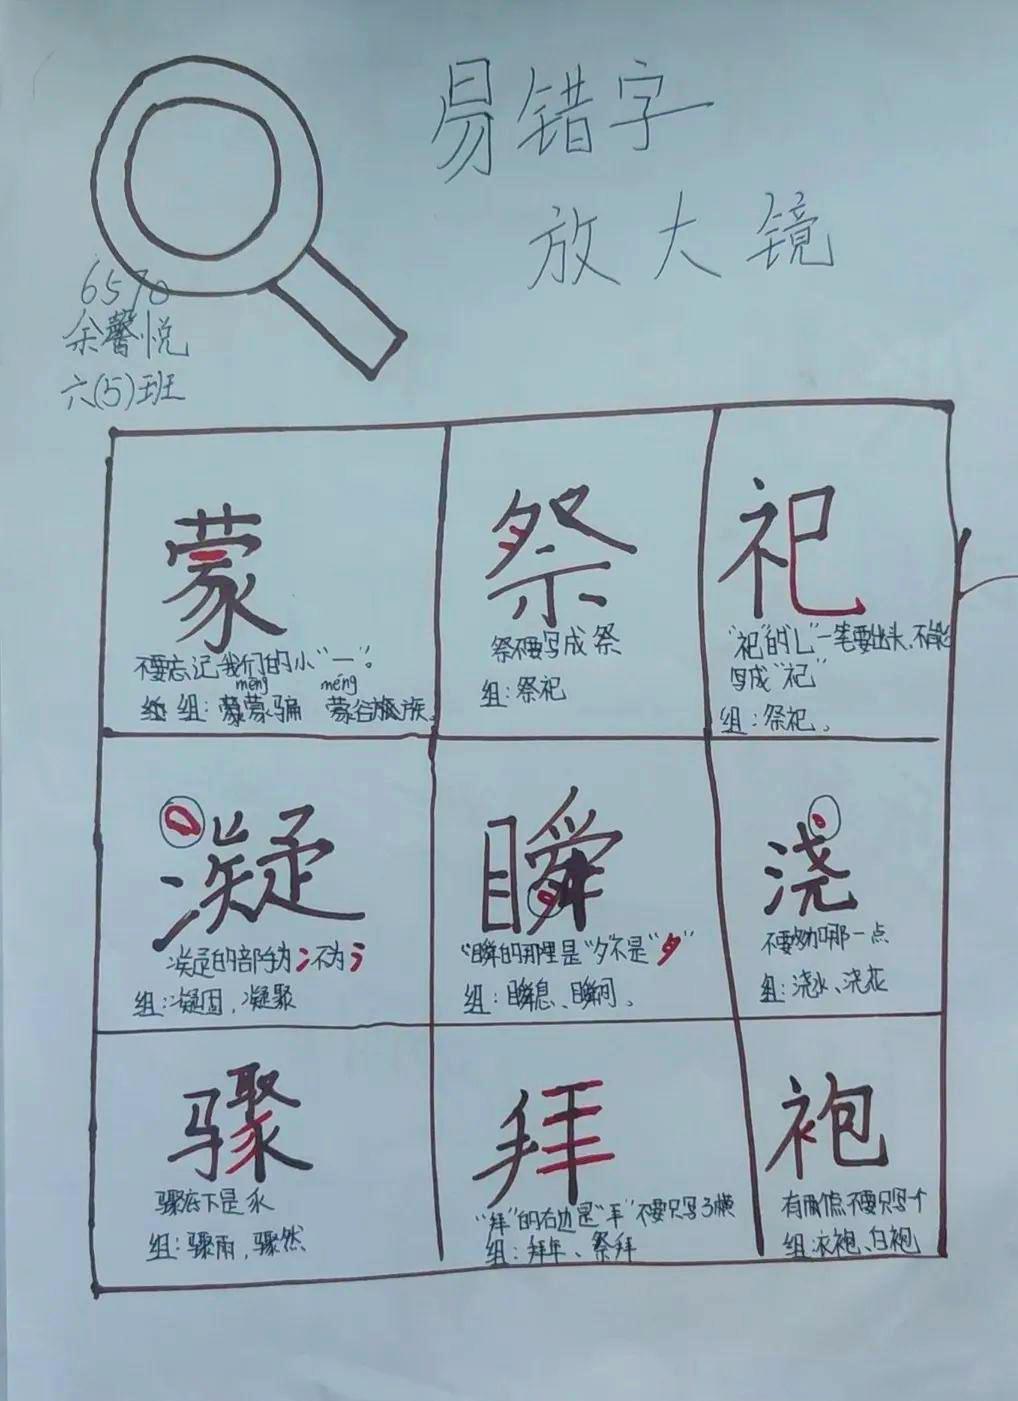 易错字
放大镜
6570
余馨悦
六(5)班
蒙
不要忘记我们的小“一”。
méng méng
组: 蒙骗 蒙谷族
祭
祭不要写成 祭
组: 祭祀
祀
“祀”的“乚”一笔要出头,不能
写成“祀”
组: 祭祀。
凝
凝的部首为冫不为氵
组: 凝固, 凝聚
瞬
“瞬的那里是“夕”不是“”
组: 瞬息、瞬间。
浇
不要多加哪一点
组: 浇水、浇花
骤
骤底下是
组: 骤雨, 骤然
拜
“拜”的右边是“”不要只写3横
组: 拜年、祭拜
袍
有两点不要只写一个
组 衣袍、白袍